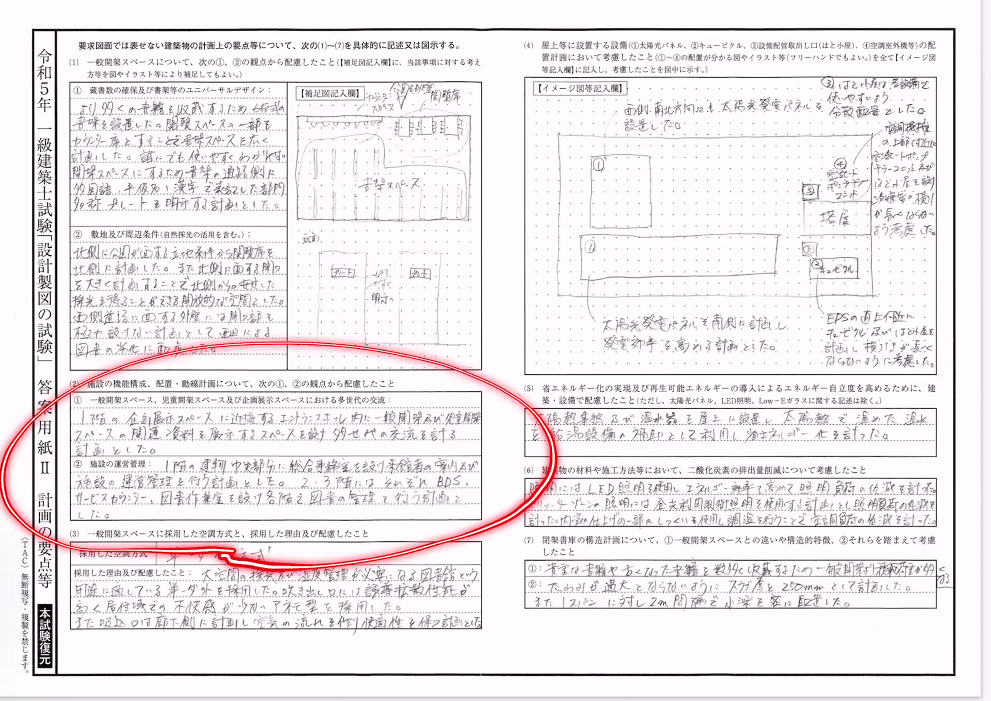 令和5年 一級建築士試験「設計製図の試験」 答案用紙Ⅱ 計画の要点等
本試験復元
(TAC) 無断複写・複製を禁じます。
要求図面では表せない建築物の計画上の要点等について、次の(1)~(7)を具体的に記述又は図示する。
(1) 一般開架スペースについて、次の①、②の観点から配慮したこと(【補足図記入欄】に、当該事項に対する考え
方等を図やイラスト等により補足してもよい。)
① 蔵書数の確保及び書架等のユニバーサルデザイン:
より多くの書籍を収蔵するため
書架を設置した。閲覧スペースの一部を
カウンター席とすることで書架スペースを広く
計画した。誰にでも使いやすくわかりやすい
開架スペースにするため書架の通路側に
多国語、平仮名、漢字で表記した部門
名称プレートを明示する計画とした。
【補足図記入欄】
閲覧席
書架スペース
② 敷地及び周辺条件(自然採光の活用を含む。):
北側に公園が面する立地条件から閲覧席を
北側に計画した。また北側に面する開口
を大きく計画することで北側からの安定した
採光を得ることができる開放的な空間とした。
西側道路に面する外壁には開口部を
極力設けない計画として西日による
図書の劣化に配慮した。
(2) 施設の機能構成、配置・動線計画について、次の①、②の観点から配慮したこと
① 一般開架スペース、児童開架スペース及び企画展示スペースにおける多世代の交流:
1階の企画展示スペースに近接するエントランスホール内に一般開架及び児童開架
スペースの関連資料を展示するスペースを設け多世代の交流を図る
計画とした。
② 施設の運営管理: 1階の建物中央部分に総合事務室を設け来館者の案内及び
施設の運営管理を行う計画とした。2、3階にはそれぞれBDS、
サービスカウンター、図書作業室を設け各階で図書の管理を行う計画と
した。
(3) 一般開架スペースに採用した空調方式と、採用した理由及び配慮したこと
採用した空調方式
採用した理由及び配慮したこと: 大空間の換気及び温度管理が必要になる図書館という
用途に適している単一ダクトを採用した。吹き出し口には誘導拡散性能が
高く居住域での不快感が少ないアネモ型を採用した。
また吸込口は廊下側に計画し空気の流れを作り快適性を保つ計画とした。
(4) 屋上等に設置する設備(①太陽光パネル、②キュービクル、③設備配管取出し口(はと小屋)、④空調室外機等)の配
置計画において考慮したこと(①~④の配置が分かる図やイラスト等(フリーハンドでもよい。)を全て【イメージ図
等記入欄】に記入し、考慮したことを図中に示す。)
【イメージ図等記入欄】
③はと小屋は各設備で
使いやすいよう
分散配置とした。
西側、南北方向にも太陽光発電パネルを
設置した。
①
④
③
塔屋
①
③
②キュービクル
太陽光発電パネルを南側に計画し
発電効率を高める計画とした。
EPSの直上付近に
キュービクル及びはと小屋を
計画し横引きが長く
ならないように考慮した。
(5) 省エネルギー化の実現及び再生可能エネルギーの導入によるエネルギー自立度を高めるために、建
築・設備で配慮したこと(ただし、太陽光パネル、LED照明、Low-Eガラスに関する記述は除く。)
太陽熱集熱及び温水器を屋上に設置し、太陽熱で温めた温水
を給湯設備の補助として利用し省エネルギー化を計った。
(6) 建築物の材料や施工方法等において、二酸化炭素の排出量削減について考慮したこと
照明にはLED照明を使用しエネルギー効率を高めて照明負荷の低減を計った。
の照明には昼光利用制御照明を使用する計画とし照明負荷の低減を
計った。内装仕上げの一部にしっくいを使用し調湿を行うことで空調負荷の低減を計った。
(7) 閉架書庫の構造計画について、①一般開架スペースとの違いや構造的特徴、②それらを踏まえて考慮
したこと
①: 貴重な書籍や古くなった書籍を数多く収蔵するため一般開架より積載荷重が多く
なる
②: たわみが過大とならないようにスラブ厚を250mmとして計画した。
また1スパンに対し2m間隔で小梁を密に配置した。